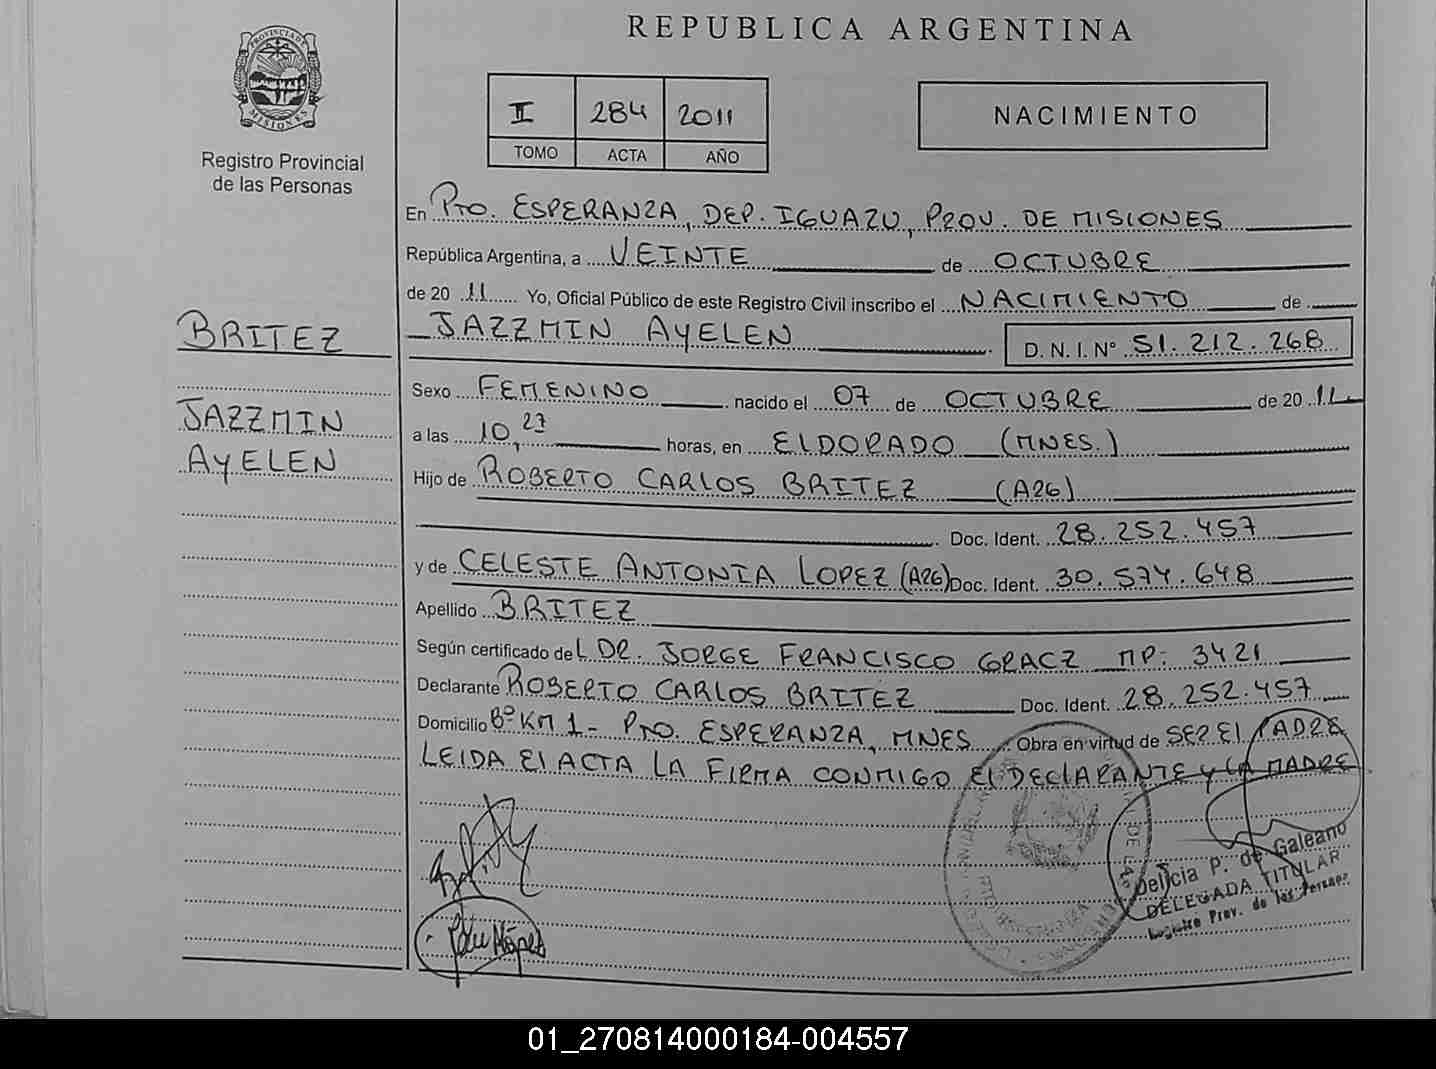 REPUBLICA ARGENTINA
PROVINCIA DE
MISIONES
Registro Provincial
de las Personas
II 284 2011
TOMO ACTA AÑO
NACIMIENTO
En Pto. ESPERANZA, DEP. IGUAZU, PROV. DE MISIONES
República Argentina, a VEINTE de OCTUBRE
de 20 11 Yo, Oficial Público de este Registro Civil inscribo el NACIMIENTO de
JAZZMIN AYELEN D. N. I. N° 51.212.268
BRITEZ
JAZZMIN
AYELEN
Sexo FEMENINO nacido el 07 de OCTUBRE de 20 11
a las 10,27 horas, en ELDORADO (MNES.)
Hijo de ROBERTO CARLOS BRITEZ (A26)
Doc. Ident. 28.252.457
y de CELESTE ANTONIA LOPEZ (A26) Doc. Ident. 30.574.648
Apellido BRITEZ
Según certificado del DR. JORGE FRANCISCO GRACZ MP: 3421
Declarante ROBERTO CARLOS BRITEZ Doc. Ident. 28.252.457
Domicilio Bº KM 1 - Pto. ESPERANZA, MNES Obra en virtud de SER EL PADRE
LEIDA EL ACTA LA FIRMA CONMIGO EL DECLARANTE y LA MADRE
Delicia P. de Galeano
DELEGADA TITULAR
Registro Prov. de las Personas
01_270814000184-004557